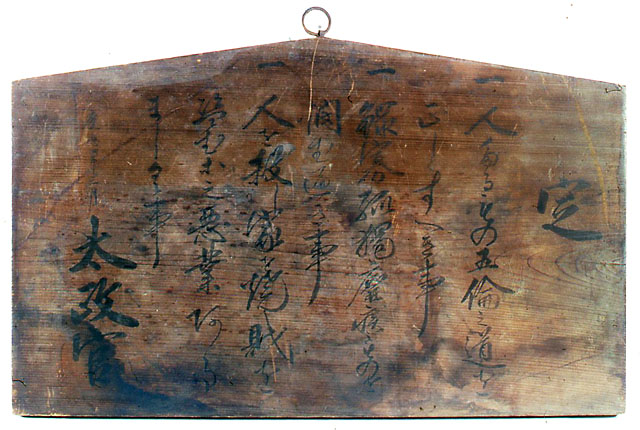 定
一 人たるもの五倫之道を
正しくすへき事
一 鰥寡孤獨廢疾のものを
憫むへき事
一 人を殺し家を焼き財を
盗む等之惡業ある
ましく事
太政官